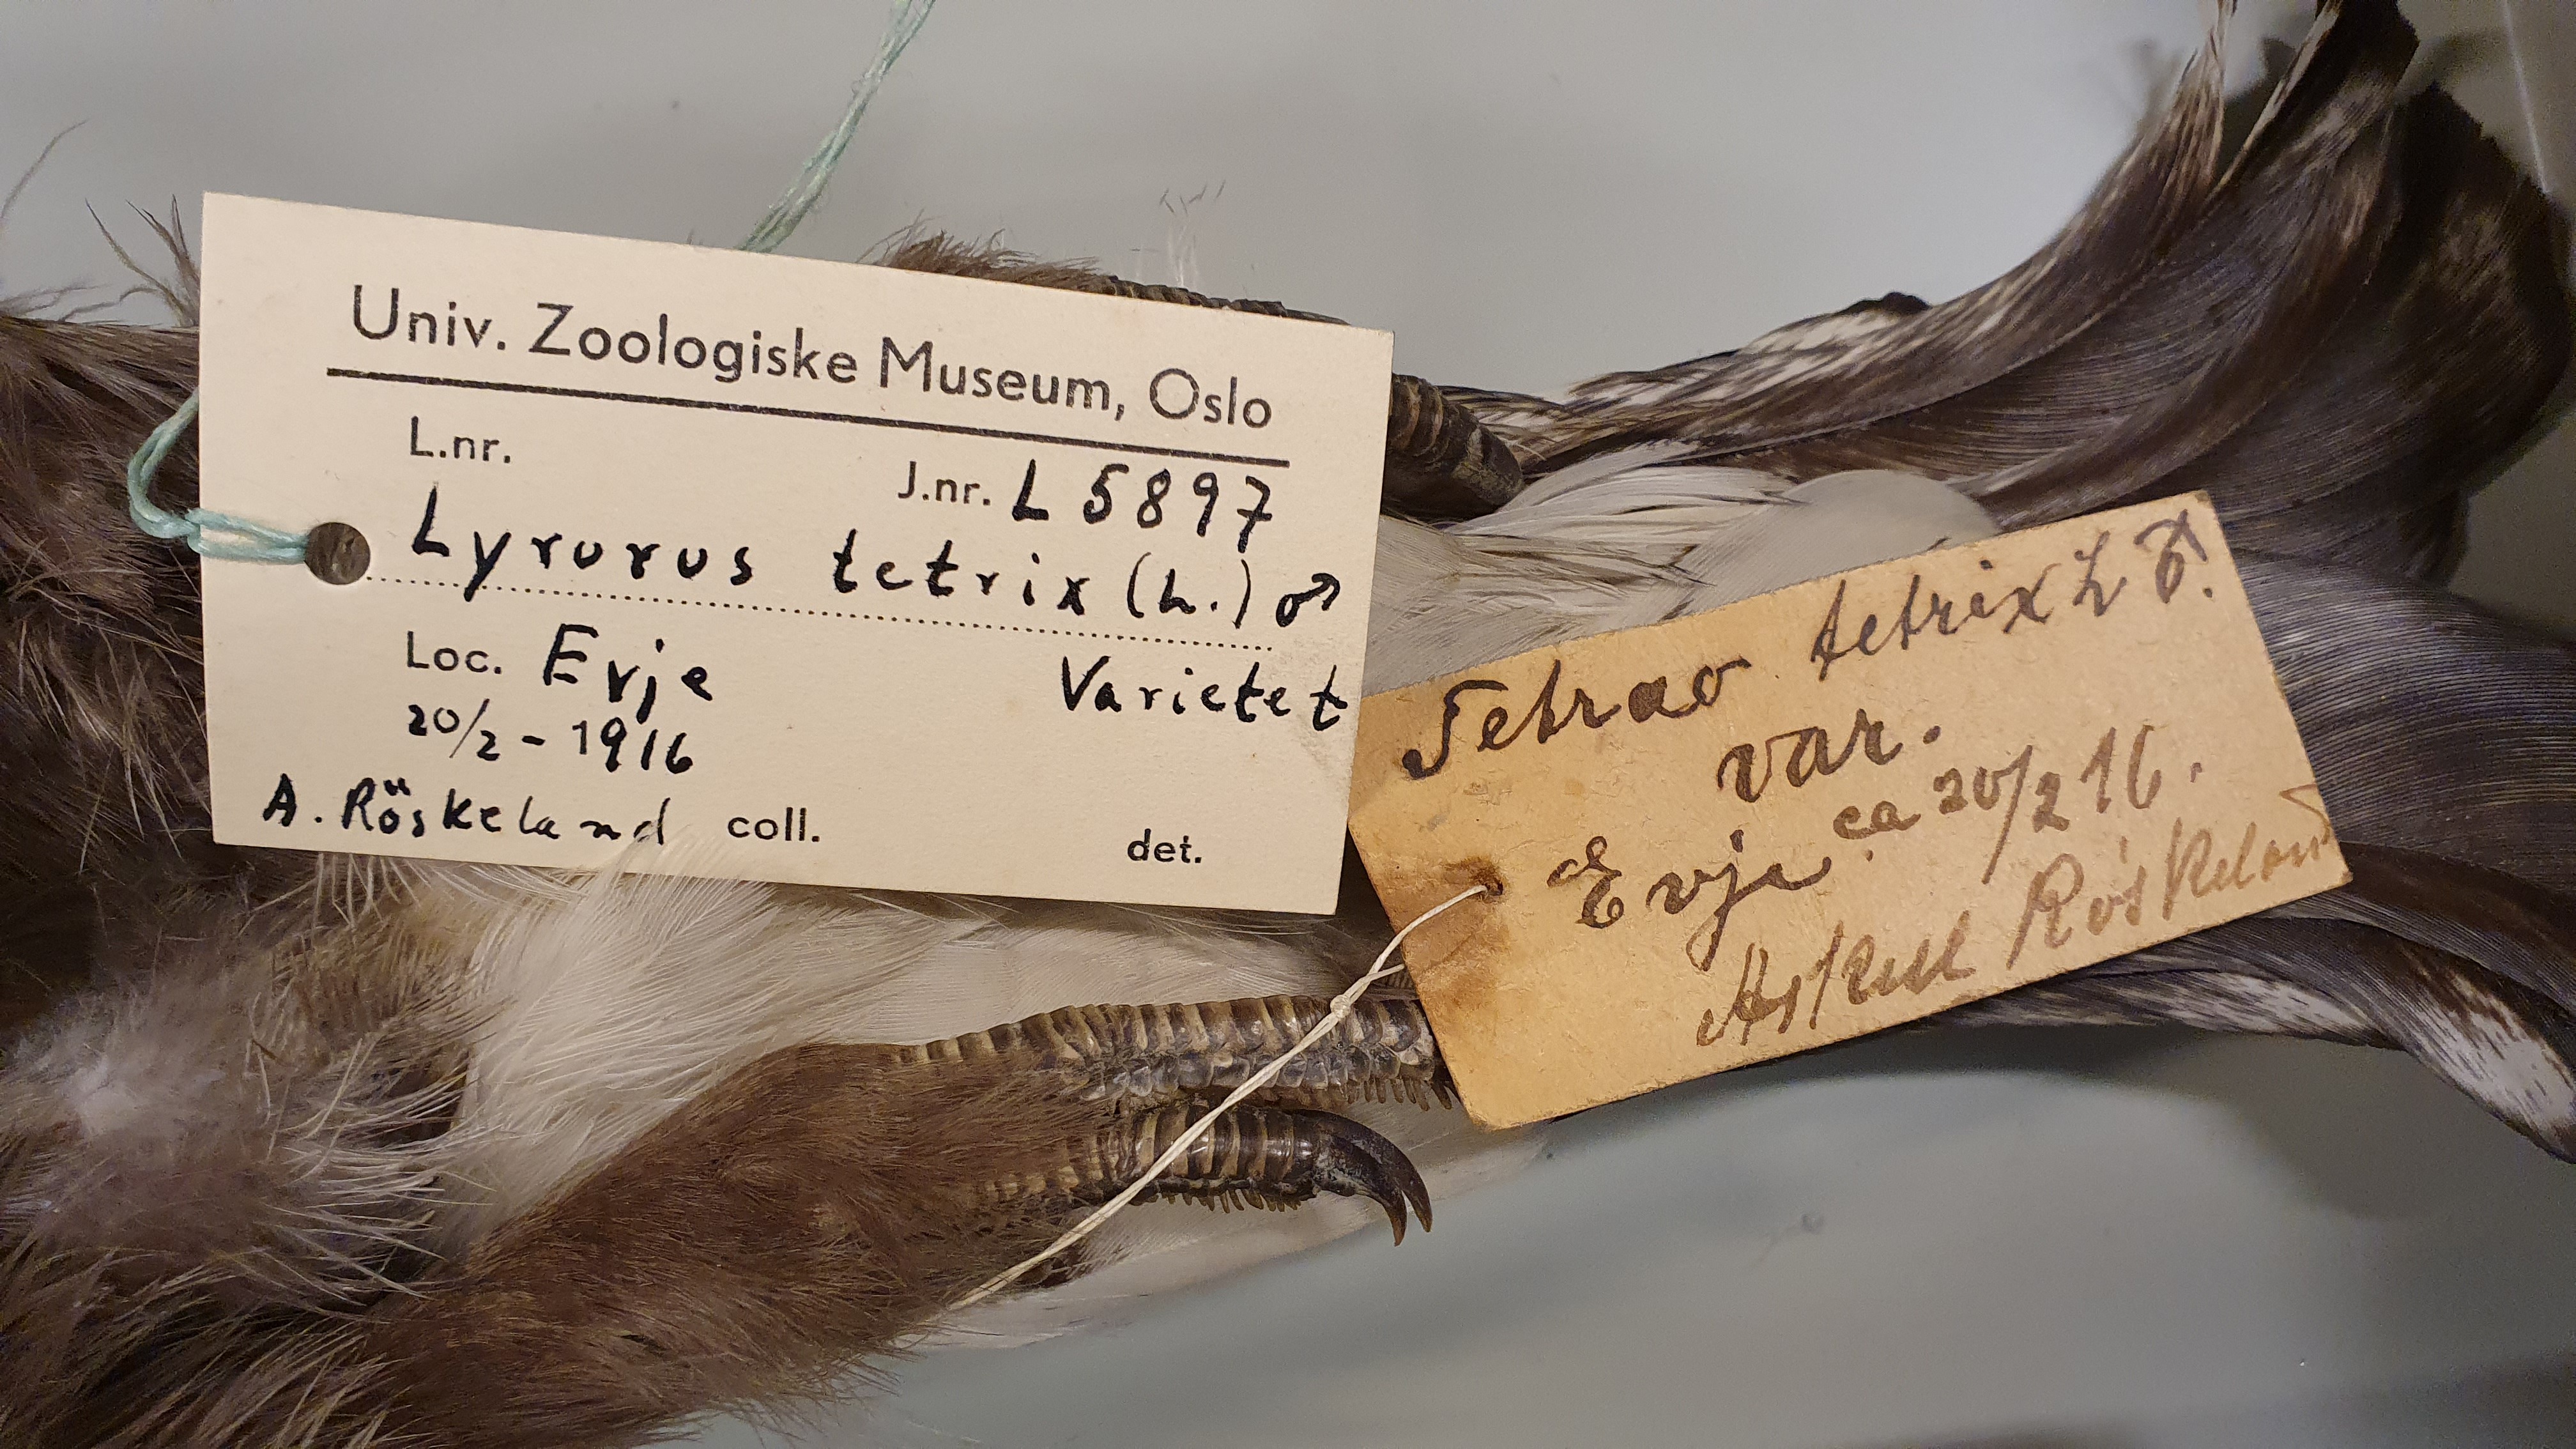 Univ. Zoologiske Museum, Oslo
L.nr.
J.nr. L 5897
Lyrurus tetrix (L.) ♂
Loc. Evje
Varietet
20/2 - 1916
A. Röskeland coll.
det.
Tetrao tetrix L ♂.
var.
Evje ca 20/2 16.
Röskeland